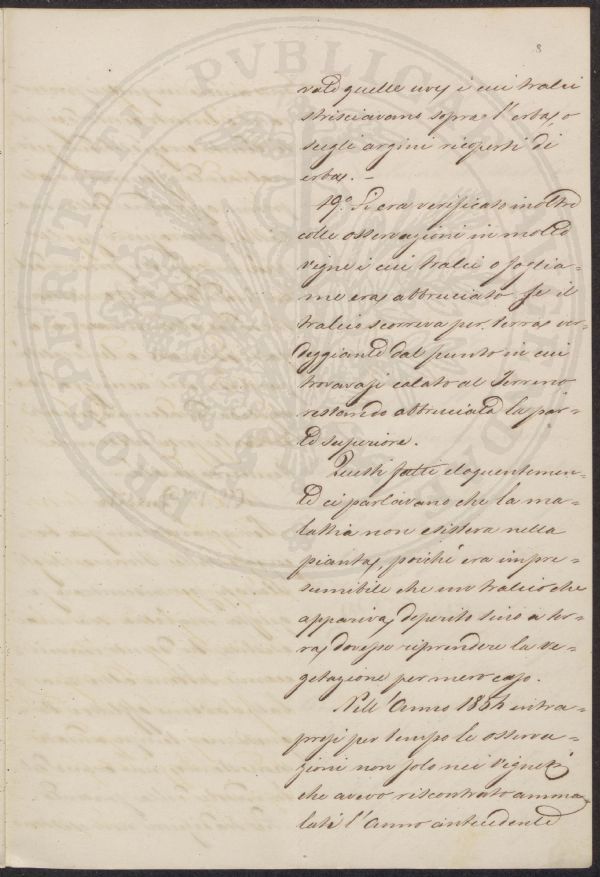 8
vate quelle uve, i cui tralci
strisciavano sopra l'erba, o
sugli argini ricoperti di
erba. –
19º. Si era verificato inoltre
colle osservazioni in molte
vigne i cui tralci o foglia-
me era abbruciato se il
tralcio scorreva per terra ver-
deggiante dal punto in cui
trovavasi calato al Terreno
restando abbruciata la par-
te superiore.
Questi fatti eloquentemen-
te ci parlavano che la ma-
lattia non esisteva nella
pianta, poichè era impre-
sumibile che un tralcio che
appariva, deperito sino a ter-
ra, dovesse riprendere la ve-
getazione per mero caso.
Nell'Anno 1854 intra-
presi per tempo le osserva-
zioni non solo nei Vigneti
che avevo riscontrato amma
lati l'Anno antecedente
PROSPERITATI PVBLICAE